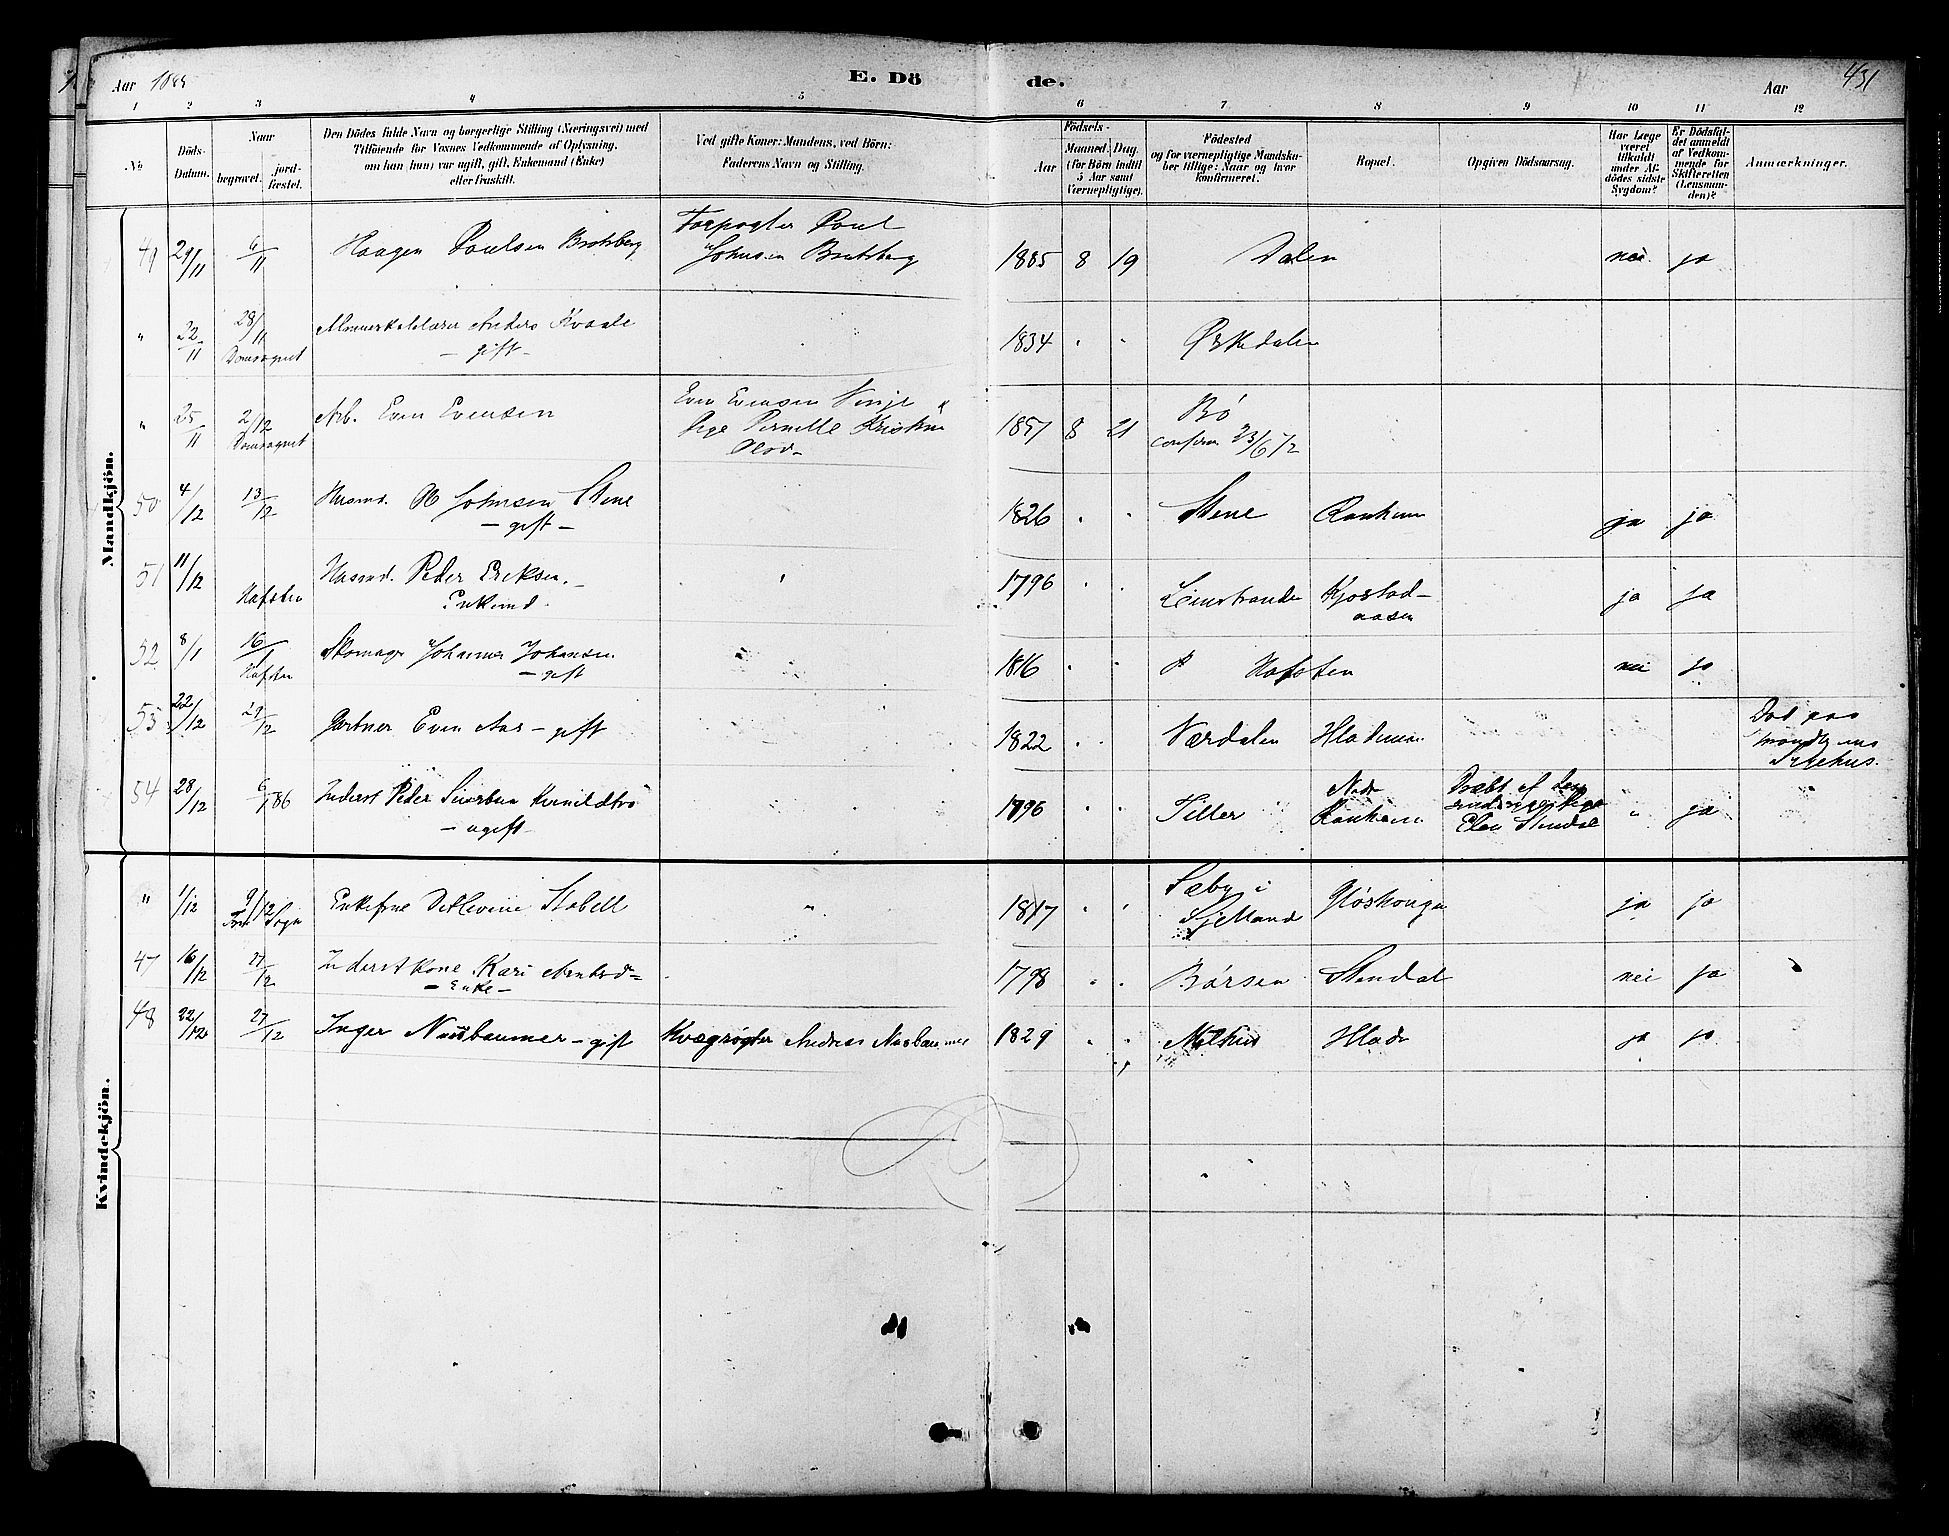 Aar 1885 E. Dö de. Aar 431
1 2 3 4 5 6 7 8 9 10 11 12
No
Döds-Datum.
Naar begravet. jord-fæstet.
Den Dödes fulde Navn og borgerlige Stilling (Næringsvei) med
Tilföiende for Voxnes Vedkommende af Oplysning,
om han (hun) var ugift, gift, Enkemand (Enke)
eller fraskilt.
Ved gifte Koner: Mandens, ved Börn:
Faderens Navn og Stilling.
Födsels-
Aar Maaned. Dag.
(for Börn indtil
5 Aar samt
Værnepligtige).
Födested
og for værnepligtige Mandska-
ber tillige: Naar og hvor
konfirmeret.
Bopæl.
Opgiven Dödsaarsag.
Har Læge
været
tilkaldt
under Af-
dödes sidste
Sygdom?
Er Dödsfal-
det anmeldt
af Vedkom-
mende for
Skifteretten
(Lensman-
den)?
Anmærkninger.
Mandkjön.
49 29/11 6/11 Haagen Poulsen Bratsberg Forpagter Poul
Johnsen Bratsberg 1885 8 19 Dalen nei ja
" 22/11 28/11 Anders Kvaale
Domsognet - gift - 1834 " " Ørkedalen
" 25/11 2/12 Arb. Even Evensen Even Evensen Vinje &
Domsognet Pige Pernille Kristine
Olsd- 1857 8 21 Bö
confirm 23/6 72
50 4/12 13/12 Husmd. O Johnsen Stene
- gift - 1826 " " Stene Ranheim ja ja
51 11/12 Husmd. Peder Eriksen. -
Hafsten Enkemd. " 1796 " " Leinstranden Kjøstad-
aasen ja ja
52 8/1 16/1 Skomager Johannes Johansen
Hafsten - gift " 1816 " " Hafsten nei ja
53 22/12 29/12 Gartner Even Aas - gift 1822 " " Værdalen Hladmoen Död paa
Sygehus.
54 28/12 6/1 86 Inderst Peder Kvernildtrö
- ugift - 1796 " " Tiller Nedr
Ranheim Dræbt af den
sindssyge Pige
Elen Stendal " ja
Kvindekjön.
" 1/12 9/12 Enkefrue Detlevine Stabell " 1817 " " Sæby i
Sogn Sjælland Gløshaugen ja ja
47 16/12 27/12 Inderstkone Kari Arntsd-
- Enke - 1798 " " Börsen Stendal nei ja
48 22/12 27/12 Inger Nussbaumer - gift Kvægrøgter Andreas Nusbaumer 1829 " " Melhus Hlade ja ja